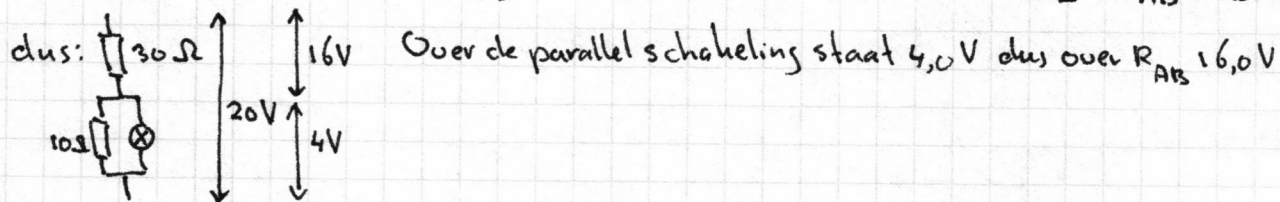 dus: 30 Ω 16V Over de parallelschakeling staat 4,0 V dus over R_AB 16,0 V
20V
10Ω 4V